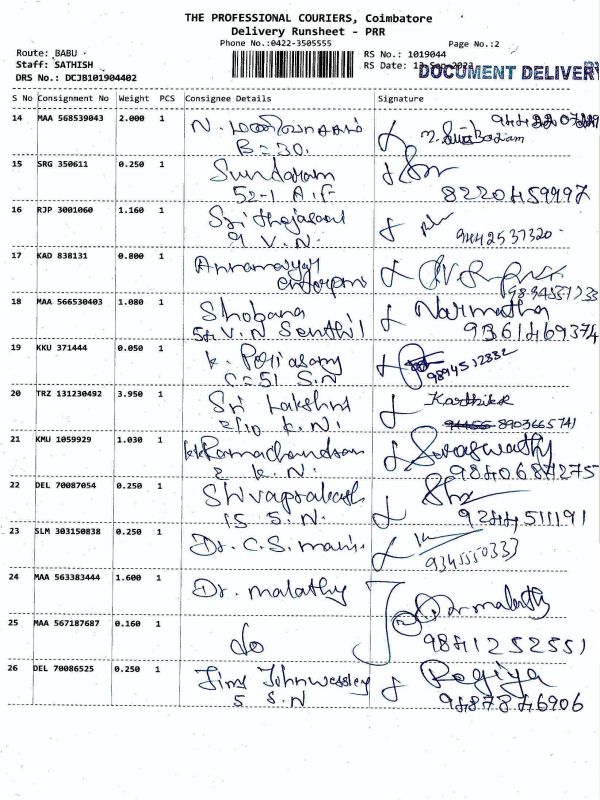 THE PROFESSIONAL COURIERS, Coimbatore
Delivery Runsheet - PRR
Phone No.:0422-3505555
Page No.:2
Route: BABU
RS No.: 1019044
Staff: SATHISH
RS Date:
DOCUMENT DELIVERY
DRS No.: DCJB101904402
S No Consignment No Weight PCS Consignee Details Signature
14 MAA 568539043 2.000 1 N.
B-30.
15 SRG 350611 0.250 1 Sundaram
52-1 A.F
8220459997
16 RJP 3001060 1.160 1
9 V.N.
9442537320
17 KAD 838131 0.800 1
18 MAA 566530403 1.080 1 Shobana Narmatha
54 V.N Senthil 9361469374
19 KKU 371444 0.050 1 K.
C-51 S.N 9894512332
20 TRZ 131230492 3.950 1 Sri Lakshmi Karthik
2/10 K.N. 8903665741
21 KMU 1059929 1.030 1 Ramachandran Saraswathy
2 K.N. 9840687275
22 DEL 70087054 0.250 1 Shivaprakash
15 S.N. 9244511191
23 SLM 303150838 0.250 1 Dr. C.S.
9345550333
24 MAA 563383444 1.600 1 Dr. malathy Dr malathy
25 MAA 567187687 0.160 1 do 9841252551
26 DEL 70086525 0.250 1 Jims Johnwessley
5 S.N 9487846906